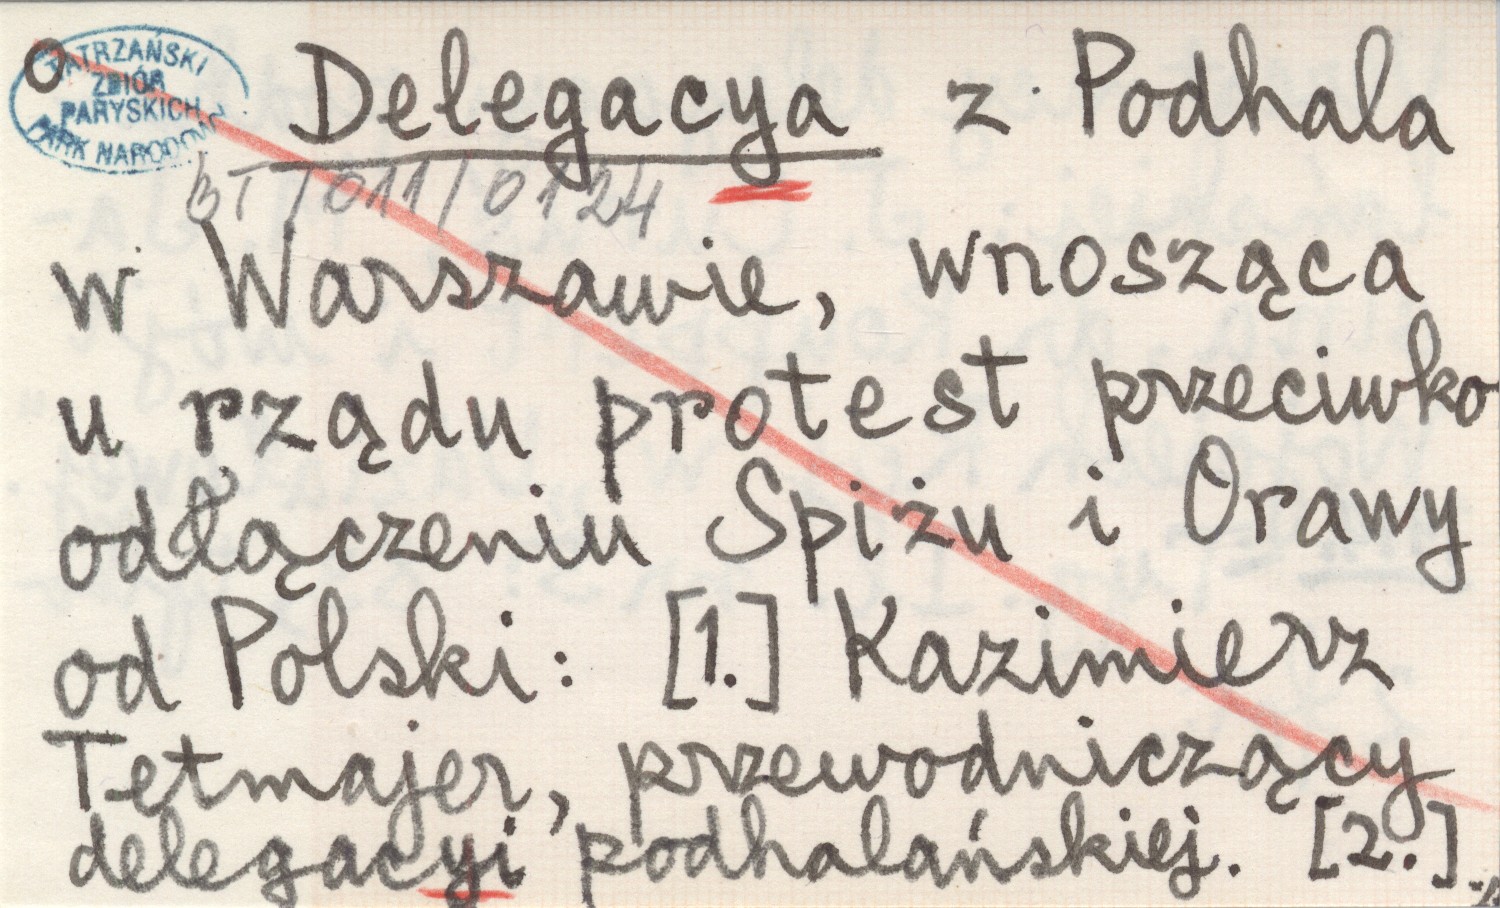 TATRZAŃSKI
ZBIÓR
PARYSKICH
PARK NARODOWY
O Delegacya z Podhala
BT/011/0124
w Warszawie, wnosząca
u rządu protest przeciwko
odłączeniu Spiżu i Orawy
od Polski: [1.] Kazimierz
Tetmajer, przewodniczący
delegacyi podhalańskiej. [2.]